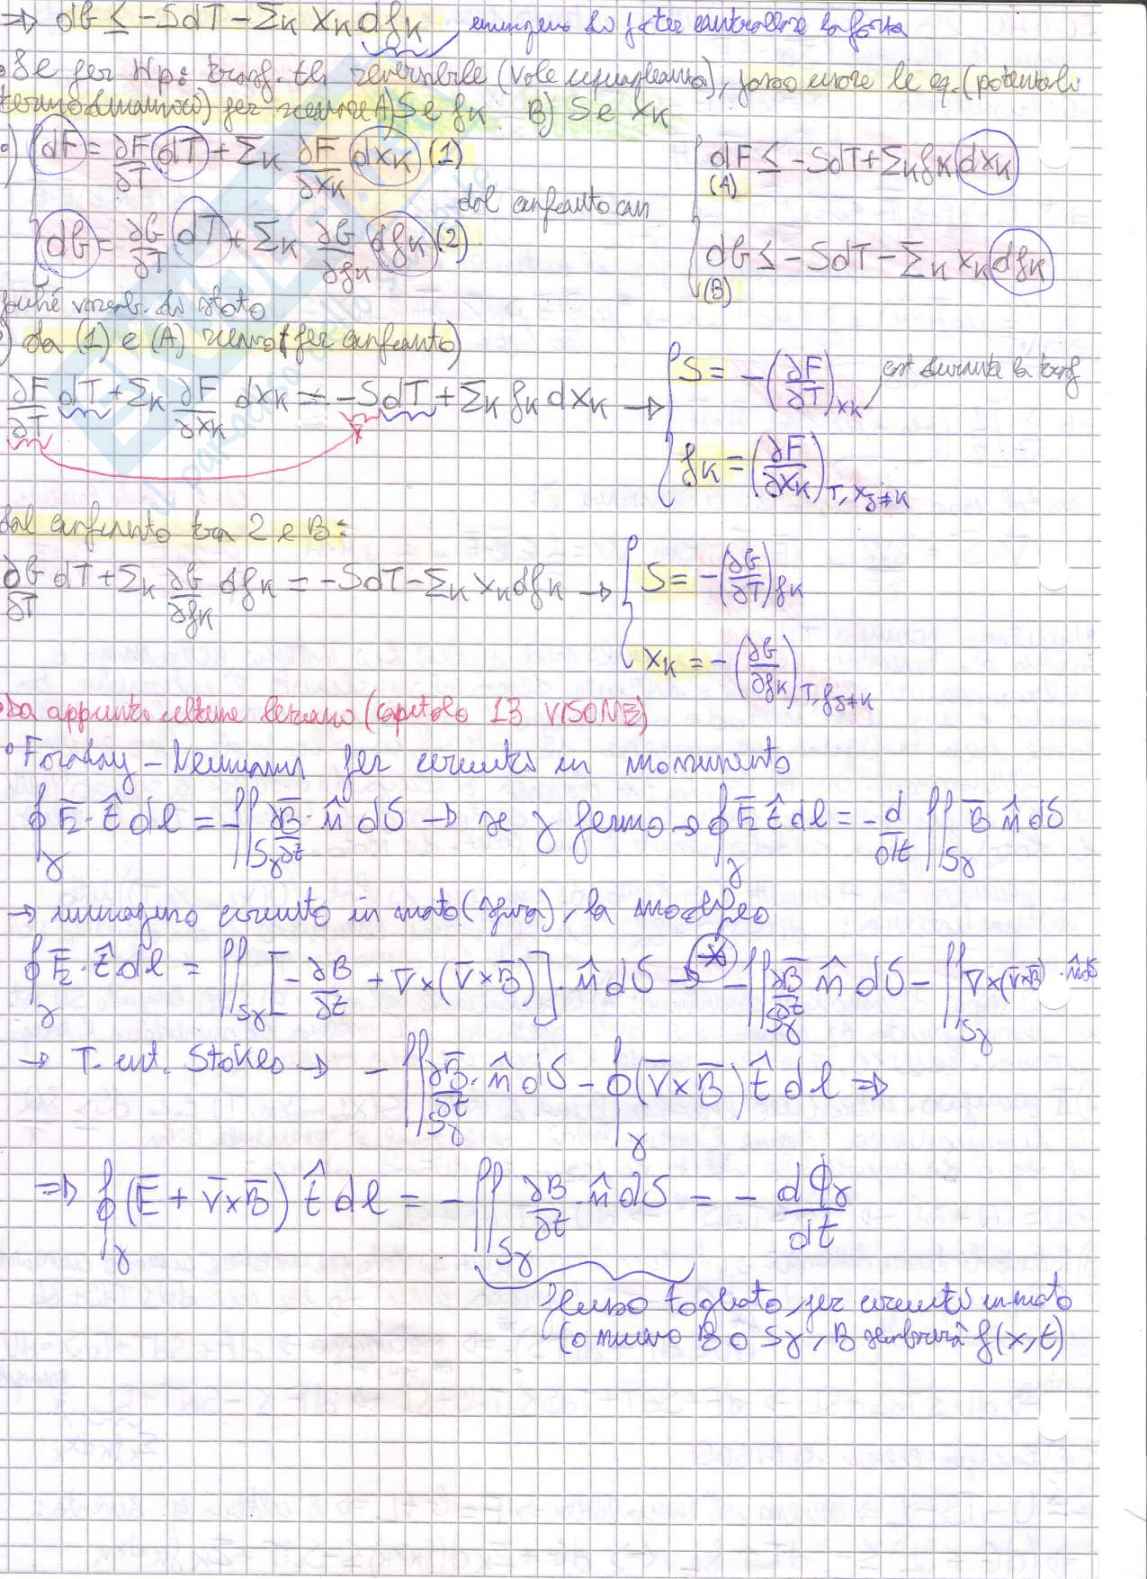 ⇒ dG ≤ -SdT - Σκ Xκ dfκ immagino di poter controllare la forza
• Se per Hp: trasf. th reversibile (vale uguaglianza), posso usare le eq. (potenziali
termodinamici) per ricavare A) S e fκ B) S e Xκ
dF = ∂F/∂T dT + Σκ ∂F/∂Xκ dXκ (1)
dF ≤ -SdT + Σκ fκ dXκ (A)
dal confronto con
dG = ∂G/∂T dT + Σκ ∂G/∂fκ dfκ (2)
dG ≤ -SdT - Σκ Xκ dfκ (B)
variab. di stato
da (1) e (A) ricavo (per confronto)
∂F/∂T dT + Σκ ∂F/∂Xκ dXκ = -SdT + Σκ fκ dXκ → S = -(∂F/∂T)Xκ
cost durante la trasf
fκ = (∂F/∂Xκ)T, Xj≠κ
dal confronto tra 2 e B:
∂G/∂T dT + Σκ ∂G/∂fκ dfκ = -SdT - Σκ Xκ dfκ → S = -(∂G/∂T)fκ
Xκ = -(∂G/∂fκ)T, fj≠κ
Da appunti ultima lezione (capitolo 13 VISONE)
• Faraday - Neumann per circuiti in movimento
∮γ E̅·t̂ dl = -∬Sγ ∂B̅/∂t · n̂ dS → se γ fermo → ∮γ E̅ t̂ dl = -d/dt ∬Sγ B̅ n̂ dS
→ immagino circuito in moto (spira), la modifico
∮γ E̅·t̂ dl = ∬Sγ [-∂B/∂t + ∇×(v̅×B̅)]·n̂ dS → (*) -∬Sγ ∂B̅/∂t n̂ dS - ∬Sγ ∇×(v̅×B̅)·n̂ dS
→ T. Stokes → -∬Sγ ∂B̅/∂t · n̂ dS - ∮γ (v̅×B̅) t̂ dl ⇒
⇒ ∮γ (E̅ + v̅×B̅) t̂ dl = -∬Sγ ∂B/∂t · n̂ dS = - dΦγ/dt
flusso tagliato, per circuiti in moto
(o muovo B o Sγ, B sembrerà f(x,t)